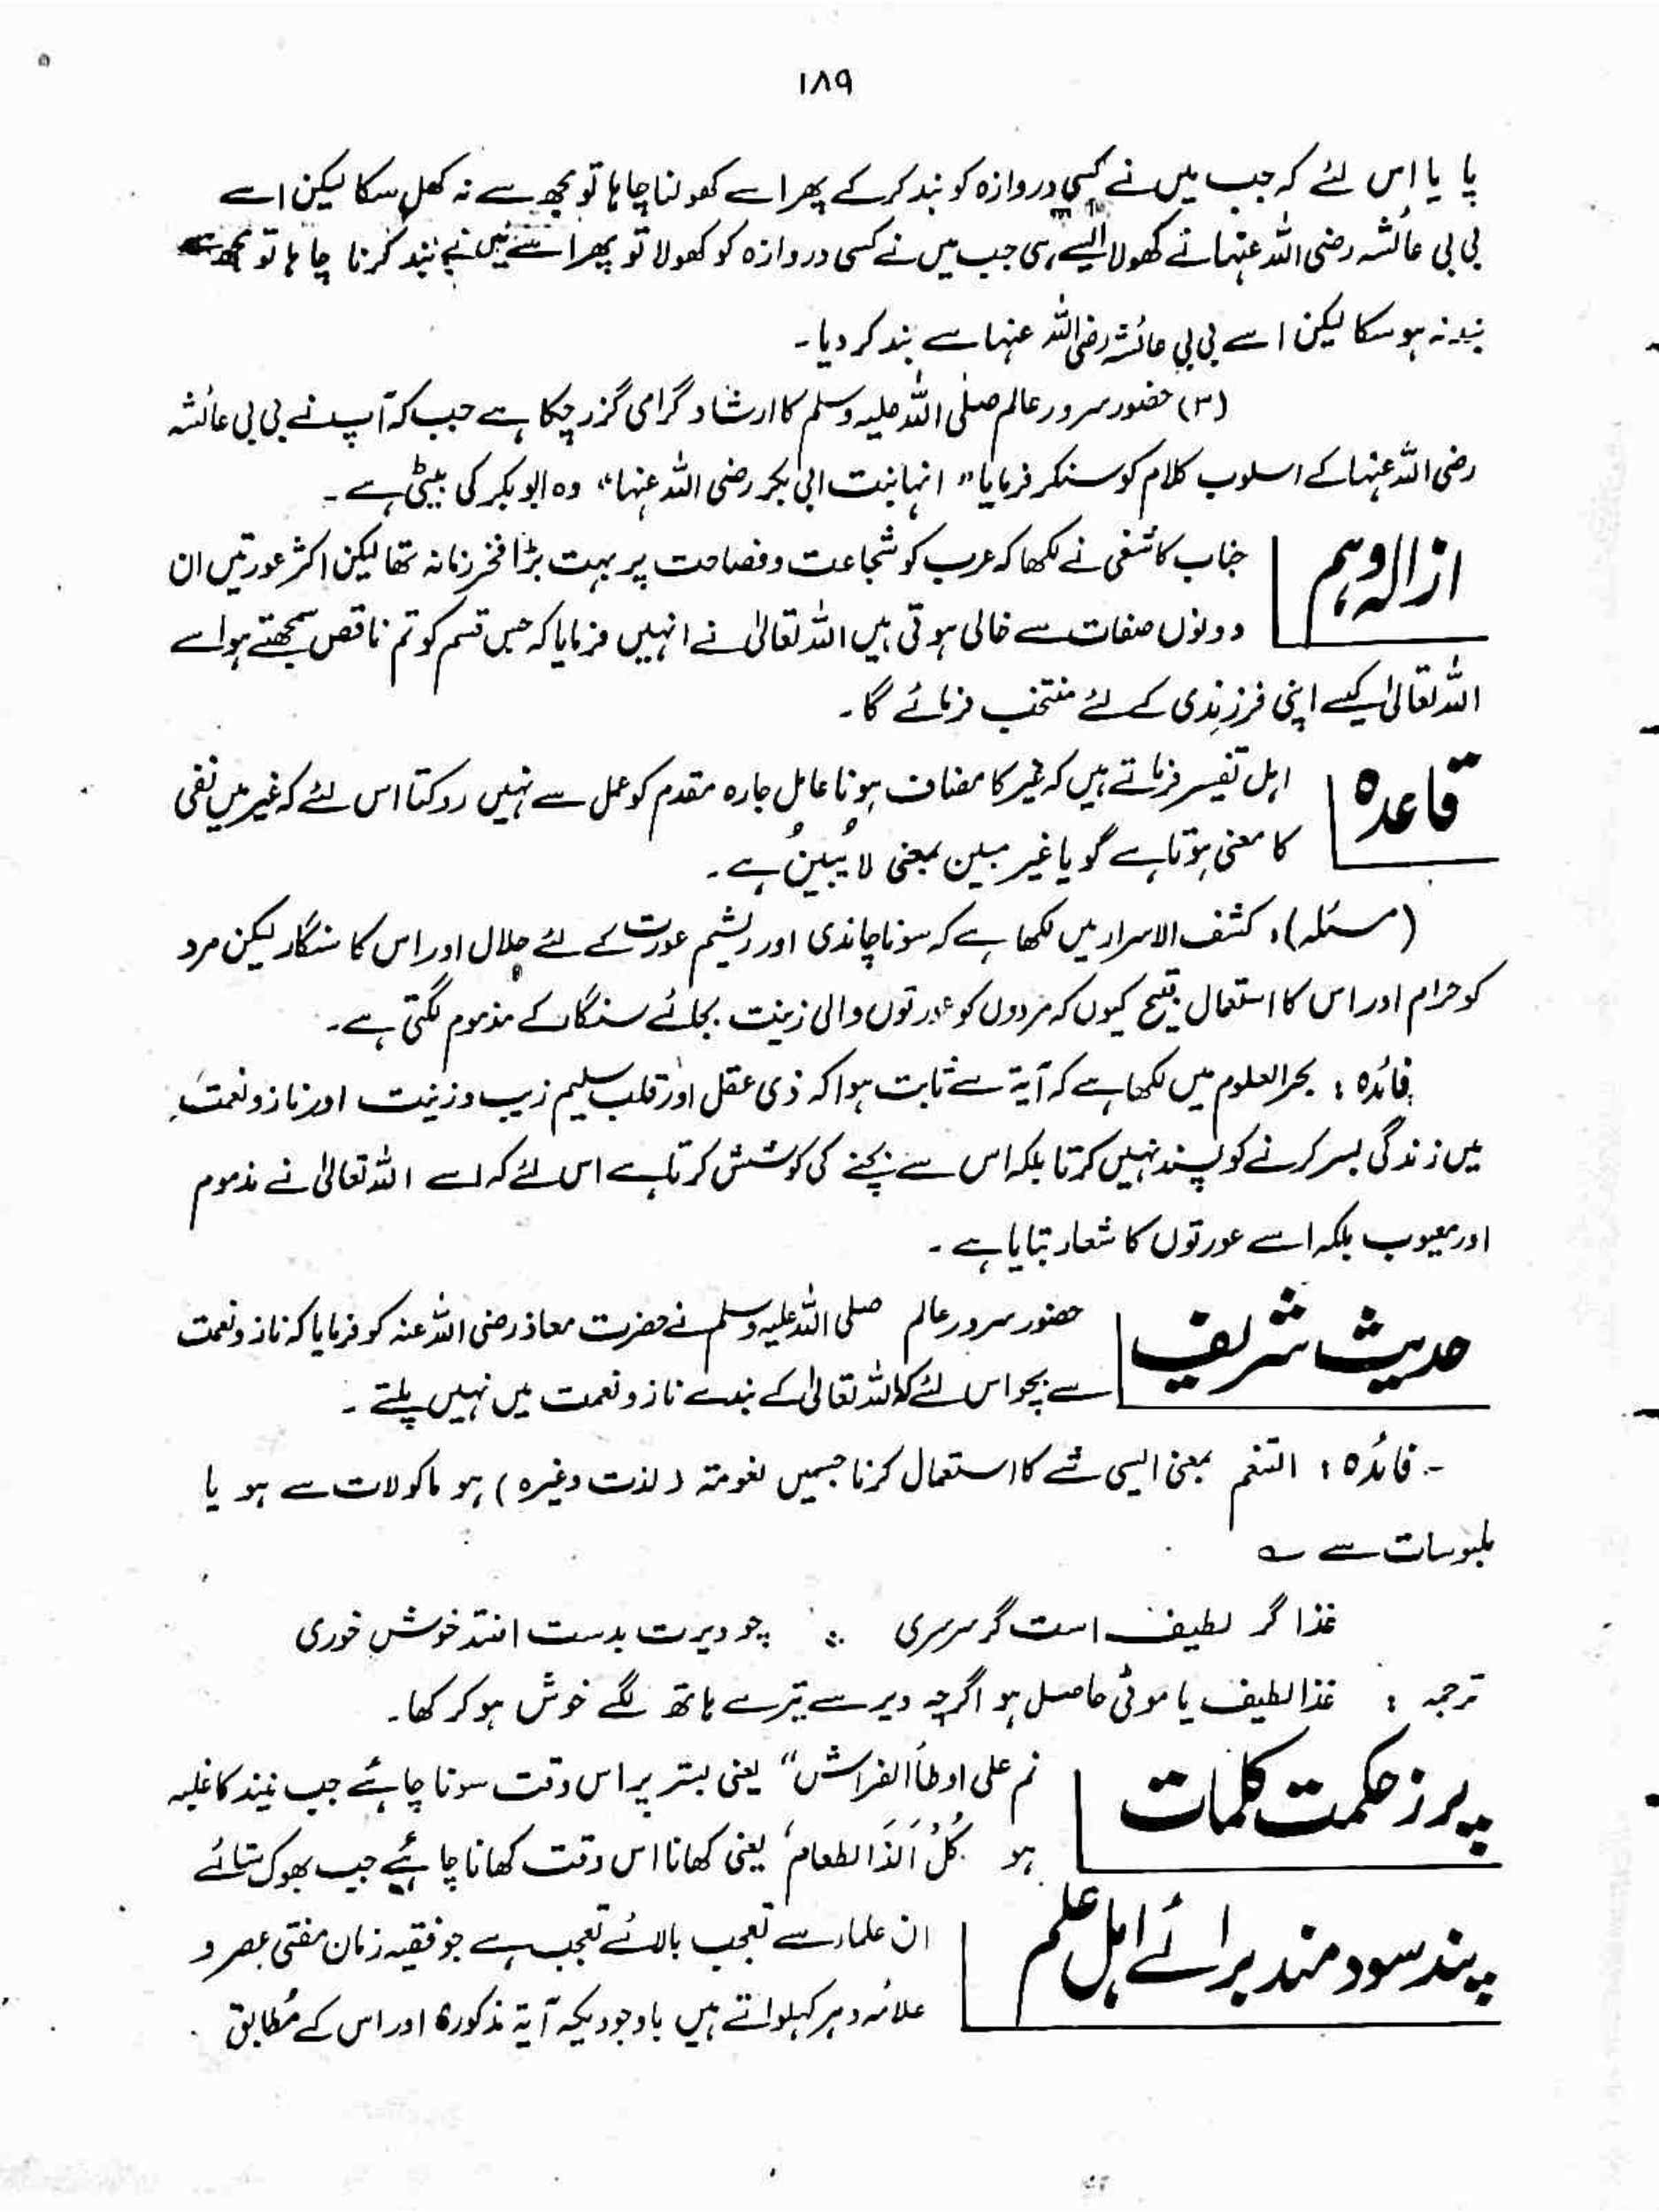 ۱۸۹
پا یا اس لئے کہ جب میں نے کسی دروازہ کو بند کر کے پھر اسے کھولنا چاہا تو مجھ سے نہ کھل سکا لیکن اسے
بی بی عائشہ رضی اللہ عنہا نے کھولا ایسے ہی جب میں نے کسی دروازہ کو کھولا تو پھر اسے میں نے بند کرنا چاہا تو مجھ سے
بند نہ ہو سکا لیکن اسے بی بی عائشہ رضی اللہ عنہا سے بند کر دیا۔
(۳) حضور سرور عالم صلی اللہ علیہ وسلم کا ارشاد گرامی گزر چکا ہے جب کہ آپ نے بی بی عائشہ
رضی اللہ عنہا کے اسلوب کلام کو سنکر فرمایا " انہا بنت ابی بکر رضی اللہ عنہا" وہ ابو بکر کی بیٹی ہے۔
ازالہ وہم
جناب کاشفی نے لکھا کہ عرب کو شجاعت و فصاحت پر بہت بڑا فخر زمانہ تھا لیکن اکثر عورتیں ان
دونوں صفات سے خالی ہوتی ہیں اللہ تعالیٰ نے انہیں فرمایا کہ جس قسم کو تم ناقص سمجھتے ہو اسے
اللہ تعالیٰ کیسے اپنی فرزندی کے لئے منتخب فرمائے گا۔
قاعدہ
اہل تفسیر فرماتے ہیں کہ غیر کا مضاف ہونا عامل جارہ مقدم کو عمل سے نہیں روکتا اس لئے کہ غیر میں نفی
کا معنی ہوتا ہے گویا غیر مبین بمعنی لا یُبینُ ہے۔
(مسئلہ)، کشف الاسرار میں لکھا ہے کہ سونا چاندی اور ریشم عورت کے لئے حلال اور اس کا سنگار لیکن مرد
کو حرام اور اس کا استعمال قبیح کیوں کہ مردوں کو عورتوں والی زینت بجائے سنگار کے مذموم لگتی ہے۔
فائدہ : بحر العلوم میں لکھا ہے کہ آیۃ سے ثابت ہوا کہ ذی عقل اور قلب سلیم زیب و زینت اور ناز و نعمت
میں زندگی بسر کرنے کو پسند نہیں کرتا بلکہ اس سے بچنے کی کوشش کرتا ہے اس لئے کہ اسے اللہ تعالیٰ نے مذموم
اور معیوب بلکہ اسے عورتوں کا شعار بتایا ہے۔
حدیث شریف
حضور سرور عالم صلی اللہ علیہ وسلم نے حضرت معاذ رضی اللہ عنہ کو فرمایا کہ ناز و نعمت
سے بچو اس لئے کہ اللہ تعالیٰ کے بندے ناز و نعمت میں نہیں پلتے۔
فائدہ : التنعم بمعنی ایسی شے کا استعمال کرنا جسمیں نعومتہ (لذت وغیرہ) ہو ماکولات سے ہو یا
ملبوسات سے ؎
غذا گر لطیف است گر سرسری ؞ چو دیرت بدست افتد خوش خوری
ترجمہ : غذا لطیف یا موٹی حاصل ہو اگرچہ دیر سے تیرے ہاتھ لگے خوش ہو کر کھا۔
پر ز حکمت کلمات
نم علی اوطأ الفراش" یعنی بستر پر اس وقت سونا چاہئے جب نیند کا غلبہ
ہو کُلْ اَلَذَ الطعام، یعنی کھانا اس وقت کھانا چاہئیے جب بھوک ستائے
پند سود مند برائے اہل علم
ان علماء سے تعجب بالائے تعجب ہے جو فقیہ زمان مفتی عصر و
علامہ دہر کہلواتے ہیں باوجودیکہ آیۃ مذکورہ اور اس کے مطابق